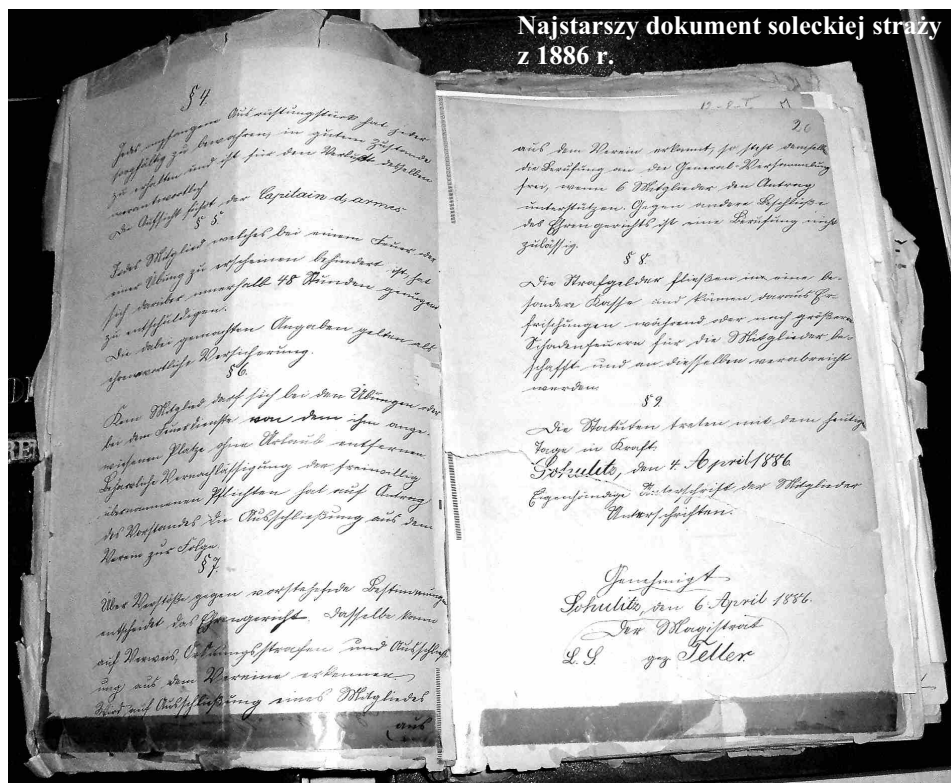 Najstarszy dokument soleckiej straży
z 1886 r.
§ 4.
Jedes empfangene Ausrüstungsstück hat jeder
sorgfältig zu bewahren, in gutem Zustande
zu erhalten und ist für den Verlust desselben
verantwortlich
Die Aufsicht führt der Capitain d'armes
§ 5.
Jedes Mitglied welches bei einem Feuer oder
einer Übung zu erscheinen behindert ist, hat
sich darüber innerhalb 48 Stunden genügend
zu entschuldigen.
Die dabei gemachten Angaben gelten als
ehrenwortliche Versicherung.
§ 6.
Kein Mitglied darf sich bei den Übungen oder
bei dem Feuerdienste von dem ihm ange-
wiesenen Platze ohne Urlaub entfernen
Vernachlässigung der freiwillig
übernommenen Pflichten hat auf Antrag
des Vorstandes die Ausschließung aus dem
Verein zur Folge.
§ 7.
Über Verstöße gegen vorstehende Bestimmungen
entscheidet das Ehrengericht. Dasselbe kann
auf Verweis, Ordnungsstrafen und Ausschließ-
ung aus dem Vereine erkennen
Wird auf Ausschließung eines Mitgliedes
aus
20
aus dem Verein erkannt, so steht demselben
die Berufung an die General-Versammlung
frei, wenn 6 Mitglieder den Antrag
unterstützen. Gegen andere Beschlüße
des Ehrengerichts ist eine Berufung nicht
zulässig.
§ 8.
Die Strafgelder fließen in eine be-
sondere Kasse und können daraus Er-
frischungen während oder nach größeren
Schadenfeuern für die Mitglieder be-
schafft und an dieselben verabreicht
werden.
§ 9.
Die Statuten treten mit dem heutigen
Tage in Kraft.
Schulitz, den 4. April 1886
Eigenhändige Unterschrift der Mitglieder
Unterschriften.
Genehmigt
Schulitz, den 6 April 1886.
Der Magistrat
L. S. gez Teller